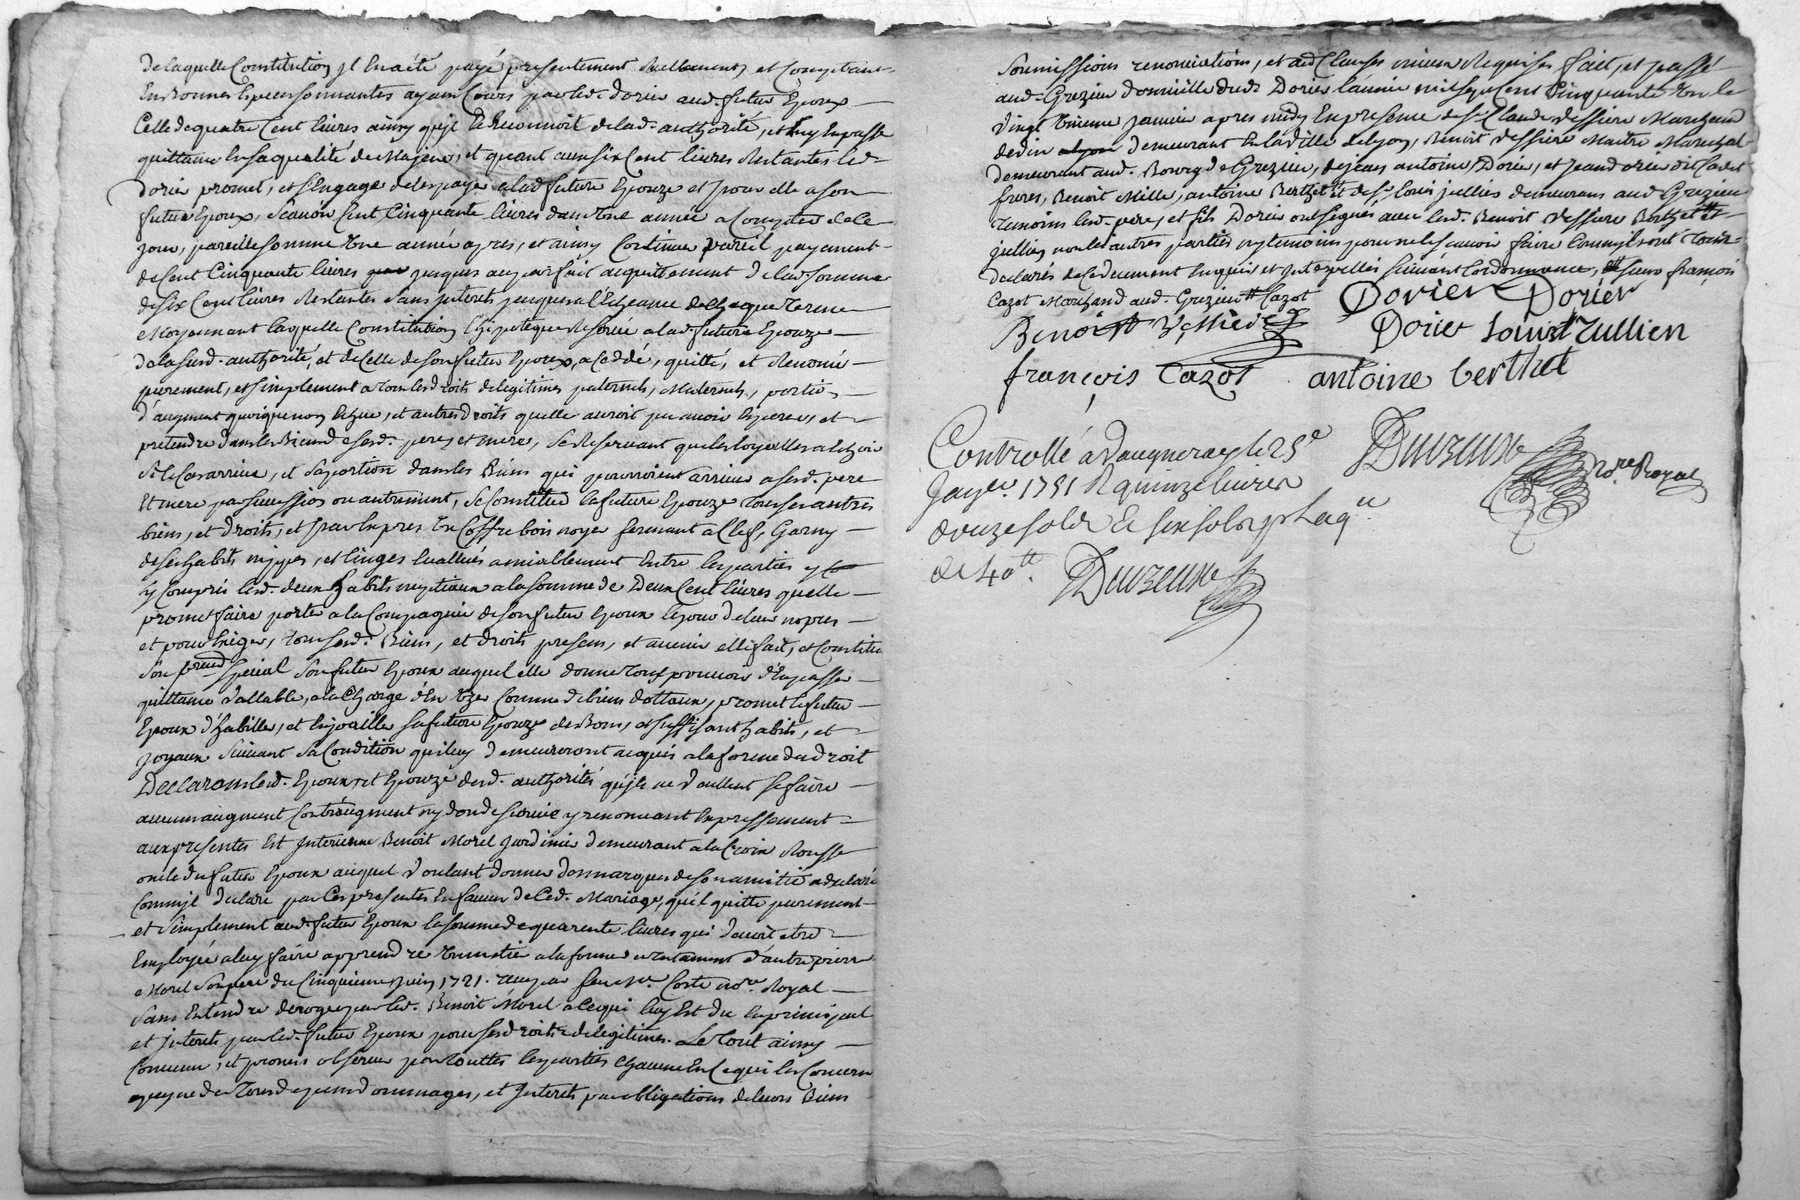 de laquelle Constitution jl En a été payé presentement Reellement et Comptant
En Bonnes Especes sonnantes ayant Cours par led. dorier aud. futur Epoux
Celle de quatre Cent livres ainsy qu'jl Le Reconnoit de lad. authorité, et luy En passe
quittance En sa qualité de Majeur, et quant aux six Cent livres Restantes led.
Dorier promet, et s'Engage de les payer a lad. future Epouze et pour elle a son
futur Epoux, scavoir Cent Cinquante livres dans une année a Compter de Ce
jour, pareille somme une année apres, et ainsy Continuer pareil payement
de Cent Cinquante livres jusques au parfait acquittement de lad. somme
de six Cent livres Restantes sans jnterets jusques a l'Echeance de Chaque terme
Moyennant laquelle Constitution l'hipoteque Reservée a lad. future Epouze
de la susd. authorité, et de Celle de son futur Epoux, a Ceddé, quitté, et Renoncé
purement, et simplement a tous les droits de legitimes paternels, Maternels, portion
d'augment quoique non Echue, et autres droits quelle auroit pu avoir Esperer, et
pretendre dans les Biens de sesd. pere, et mere, se Reservant que les loyalles
sile Cas arrive, et sa portion dans les Biens qui pourroient arriver a sesd. pere
Et mere par succession ou autrement, se Constitue la future Epouze tous ses autres
biens, et droits, et par Exprès un Coffre bois noyer fermant a Clef, Garny
de ses habits nippes, et linges Evalués amiablement Entre les parties
y Compris lesd. deux habits nuptiaux a la somme de Deux Cent livres quelle
promet faire porter a la Compagnie de son futur Epoux le jour de leur nopces
et pour Exiger, tous sesd. Biens, et droits presens, et avenir elle fait, et Constitue
son preur special son futur Epoux auquel elle donne tout pouvoir d'En passer
quittance vallable, a la Charge d'En user Comme de biens dottaux, promet le futur
Epoux d'habiller, et Enjoailler sa future Epouze de Bons, et suffisant habits, et
joyaux suivant sa Condition qui luy demeureront acquis a la forme du droit
Declarans lesd. Epoux, et Epouze desd. authorités qu'jls ne veullent se faire
aucun augment Contraugment ny don de survie y renonceant Expressement
aux presentes Est jntervenu Benoit Morel jardinier demeurant a la Croix Rousse
oncle du futur Epoux auquel voulant donner des marques de son amitié a declaré
Comm'jl declare par Ces presentes En faveur de Ced. Mariage, qu'il quitte purement
et simplement aud. futur Epoux la somme de quarente livres qui devoit etre
Employée a luy faire apprendre un metier a la forme du testament d'autre pierre
Morel son pere du Cinquieme juin 1721. reçu par feu Me. Coste nore. Royal
sans Entendre deroger par led. Benoit Morel a Ce qui luy Est du En principal
et jnterets par led. futur Epoux pour ses droits de legitimes. Le tout ainsy
Convenu, et promis observer par touttes les parties Chacune En Ce qui les Concerne
a peyne de tous depens dommages, et jnterets par obligations de leurs Biens
soumissions renonciations, et aud Clauses Requises fait, et passé
aud. Grezieu domicille dud. Dorier l'année mil sept Cent Cinquante un le
vingt unieme janvier apres midy En presence de Sr. Claude Vessiere Marchand
de vin demeurant En la ville de lyon, Benoit Vessiere Maitre Marechal
demeurant aud. Bourg de Grezieu, de jean antoine Dorier, et jean dorier dit Cadet
freres, Benoit Mille, antoine Berthet et de Sr. louis jullien demeurans aud. Grezieu
temoins led. pere, et fils Dorier ont signés avec led. Benoit Vessiere Berthet et
jullien non les autres parties ny temoins pour ne le scavoir faire Comm'jls ont tous
declarés de Ce duement Enquis et jnterpellés suivant l'ordonnance, et sieur françois
Cazot Marchand aud. Grezieu Cazot
Dorier Dorier
Benoist Vessiere
Dorier Louis Jullien
françois Cazot
antoine berthet
Controllé a Vaugneray le 25e
janver. 1751 R quinze livres
douze sols Et six sols
de 40 tt.
Duvzeux
Duvzeux
Nore. Royal